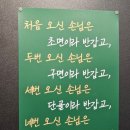 처음 오신 손님은
초면이라 반갑고,
두번 오신 손님은
구면이라 반갑고,
세번 오신 손님은
단골이라 반갑고,
네번 오신 손님은